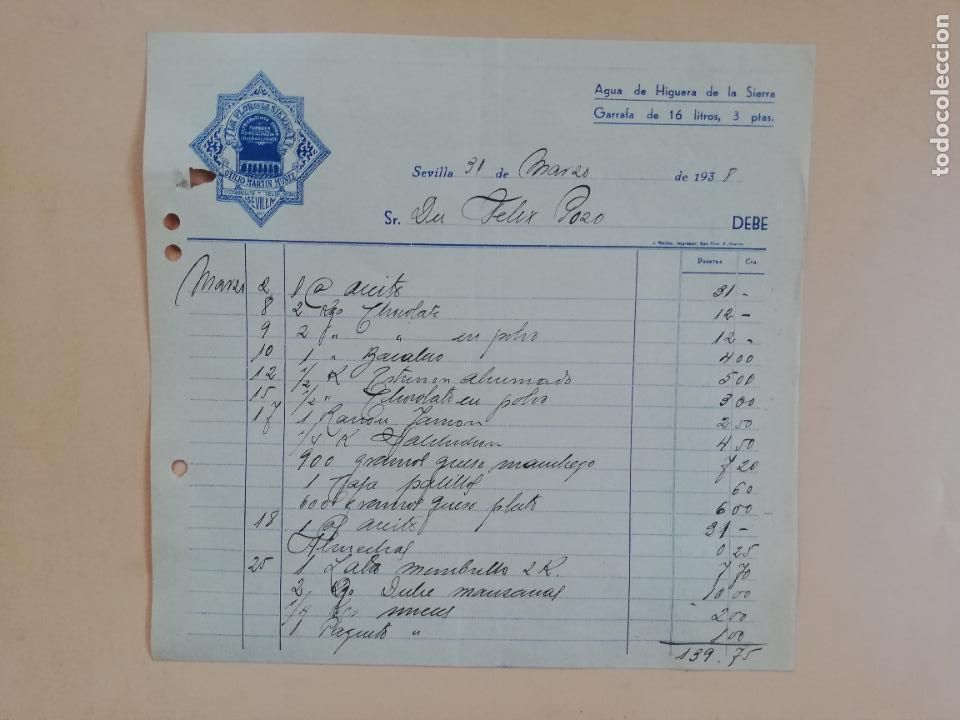 Agua de Higuera de la Sierra
Garrafa de 16 litros, 3 ptas.
OTILIO MARTIN MUÑIZ
SEVILLA
Sevilla 31 de Marzo de 1938
Sr. Dn Felix Pozo DEBE
Pesetas Cts.
Marzo 2 1 @ aceite 31 -
8 2 Kgo Chocolate 12 -
9 2 " " en polvo 12 "
10 1 " Bacalao 4 00
12 1/2 K ahumado 5 00
15 1/2 " Chocolate en polvo 3 00
17 1 Jamon 2 50
1/4 K 4 50
900 gramos queso manchego 7 20
1 Caja palillos 60
600 gramos queso plato 6 00
18 1 @ aceite 31 -
0 25
25 1 Lata membrillo 2 K. 7 70
2 Kgo Dulce manzanas 10 00
1/4 Kgo nueces 2 00
1 Paquete " 1 00
139.75
todocoleccion